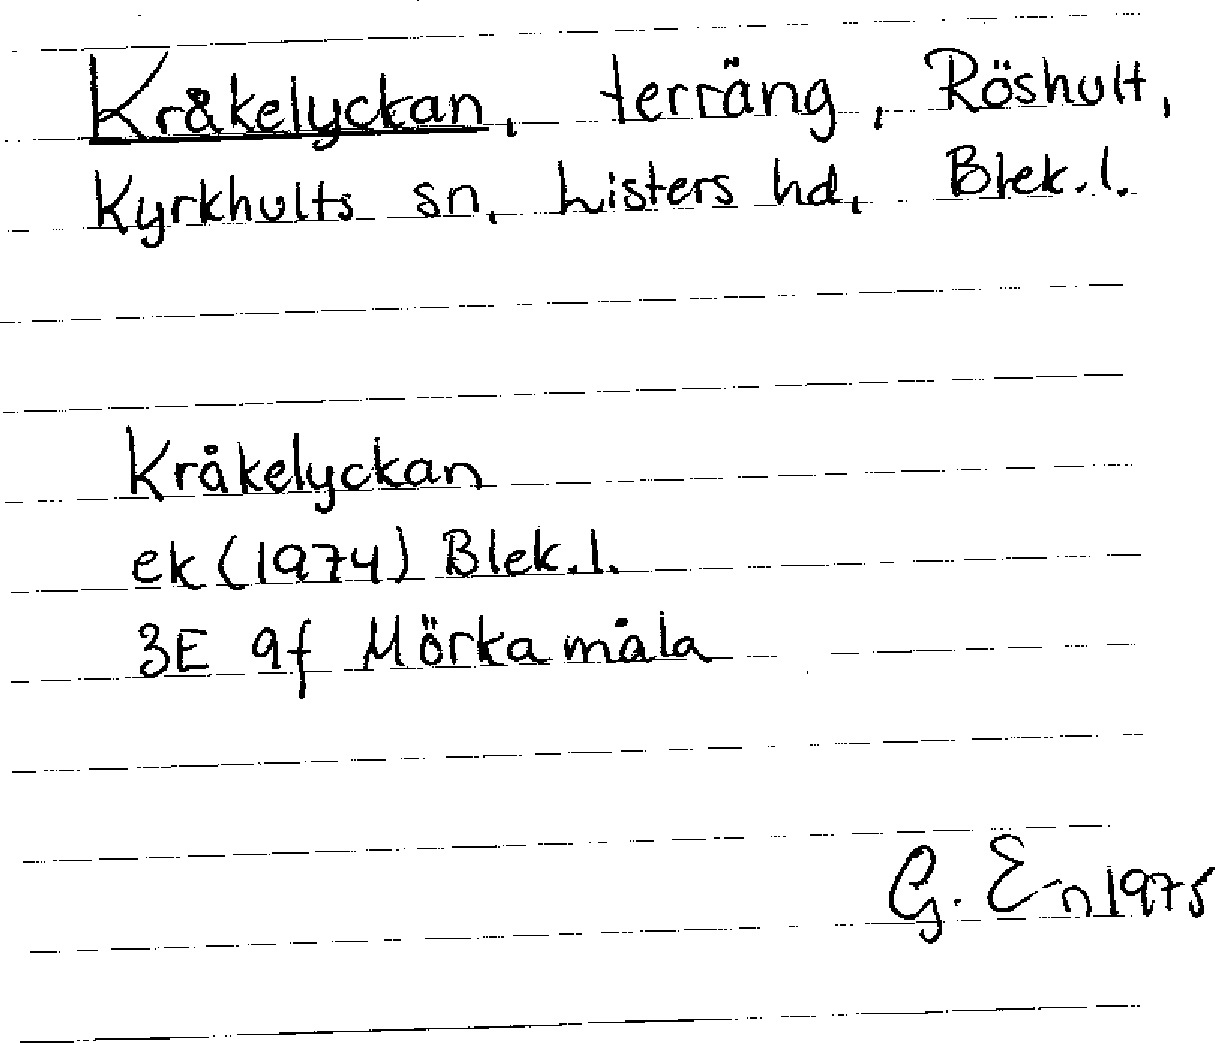 Kråkelyckan, terräng, Röshult,
Kyrkhults sn, Listers hd, Blek.l.
Kråkelyckan
ek (1974) Blek.l.
3E 9f Mörkamåla
G. E-n 1975